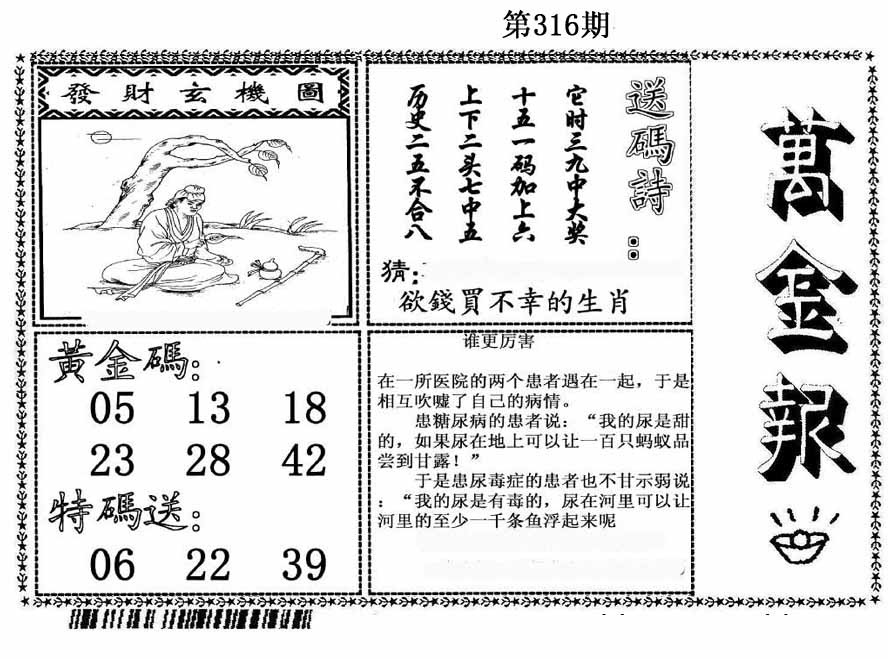 第316期
發財玄機圖
送碼詩：
它时三九中大奖
十五一码加上六
上下二头七中五
历史二五不合八
猜：
欲錢買不幸的生肖
萬金報
黃金碼：
05 13 18
23 28 42
特碼送：
06 22 39
谁更厉害
在一所医院的两个患者遇在一起，于是
相互吹嘘了自己的病情。
患糖尿病的患者说：“我的尿是甜
的，如果尿在地上可以让一百只蚂蚁品
尝到甘露！”
于是患尿毒症的患者也不甘示弱说
：“我的尿是有毒的，尿在河里可以让
河里的至少一千条鱼浮起来呢